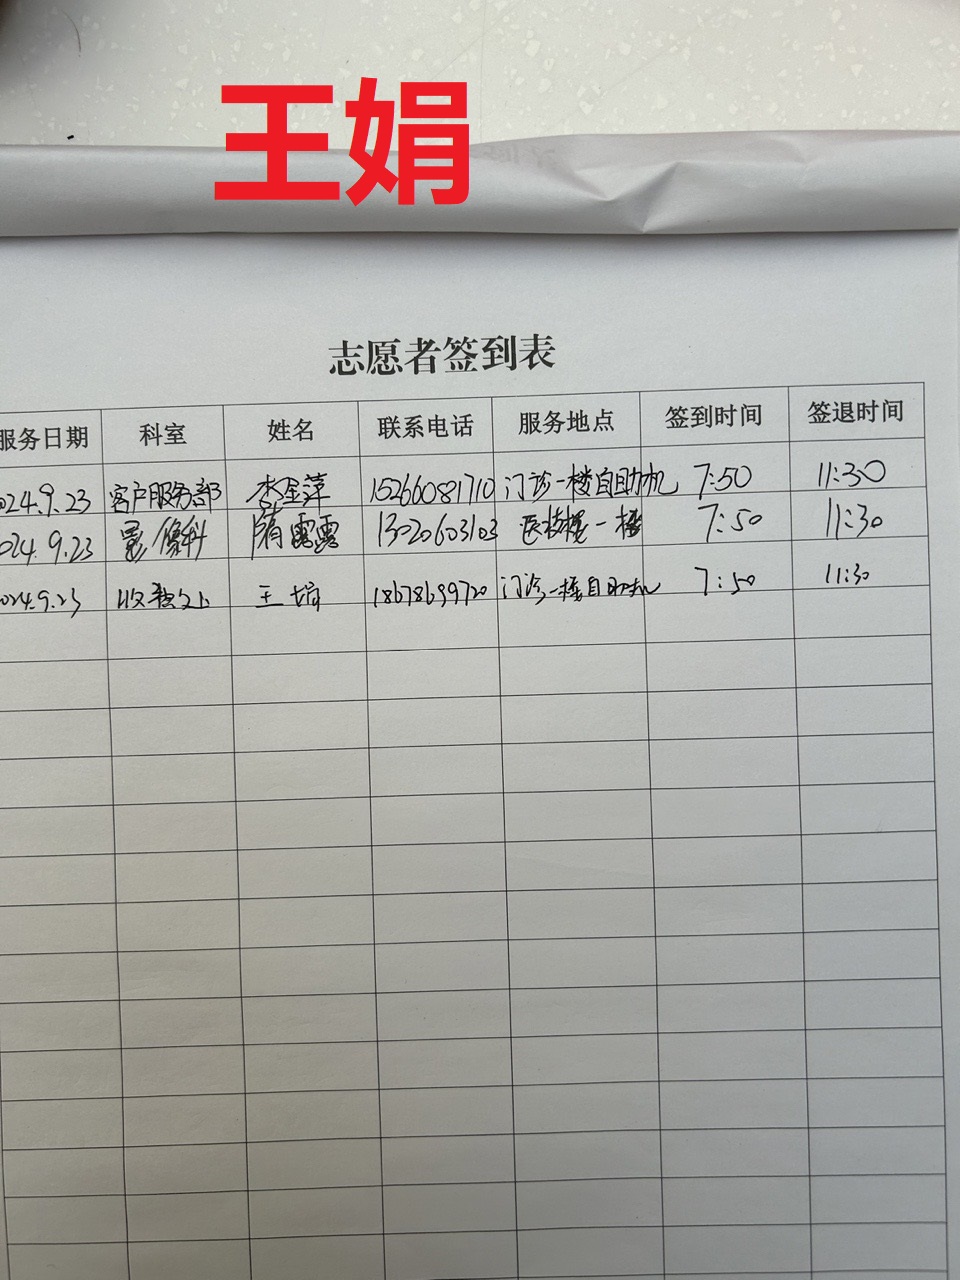 王娟
志愿者签到表
服务日期 科室 姓名 联系电话 服务地点 签到时间 签退时间
2024.9.23 客户服务部 李金萍 15266081710 门诊一楼自助机 7:50 11:30
2024.9.23 影像科 隋露露 13020603103 医技楼一楼 7:50 11:30
2024.9.23 收款处 王娟 18678699720 门诊一楼自助机 7:50 11:30